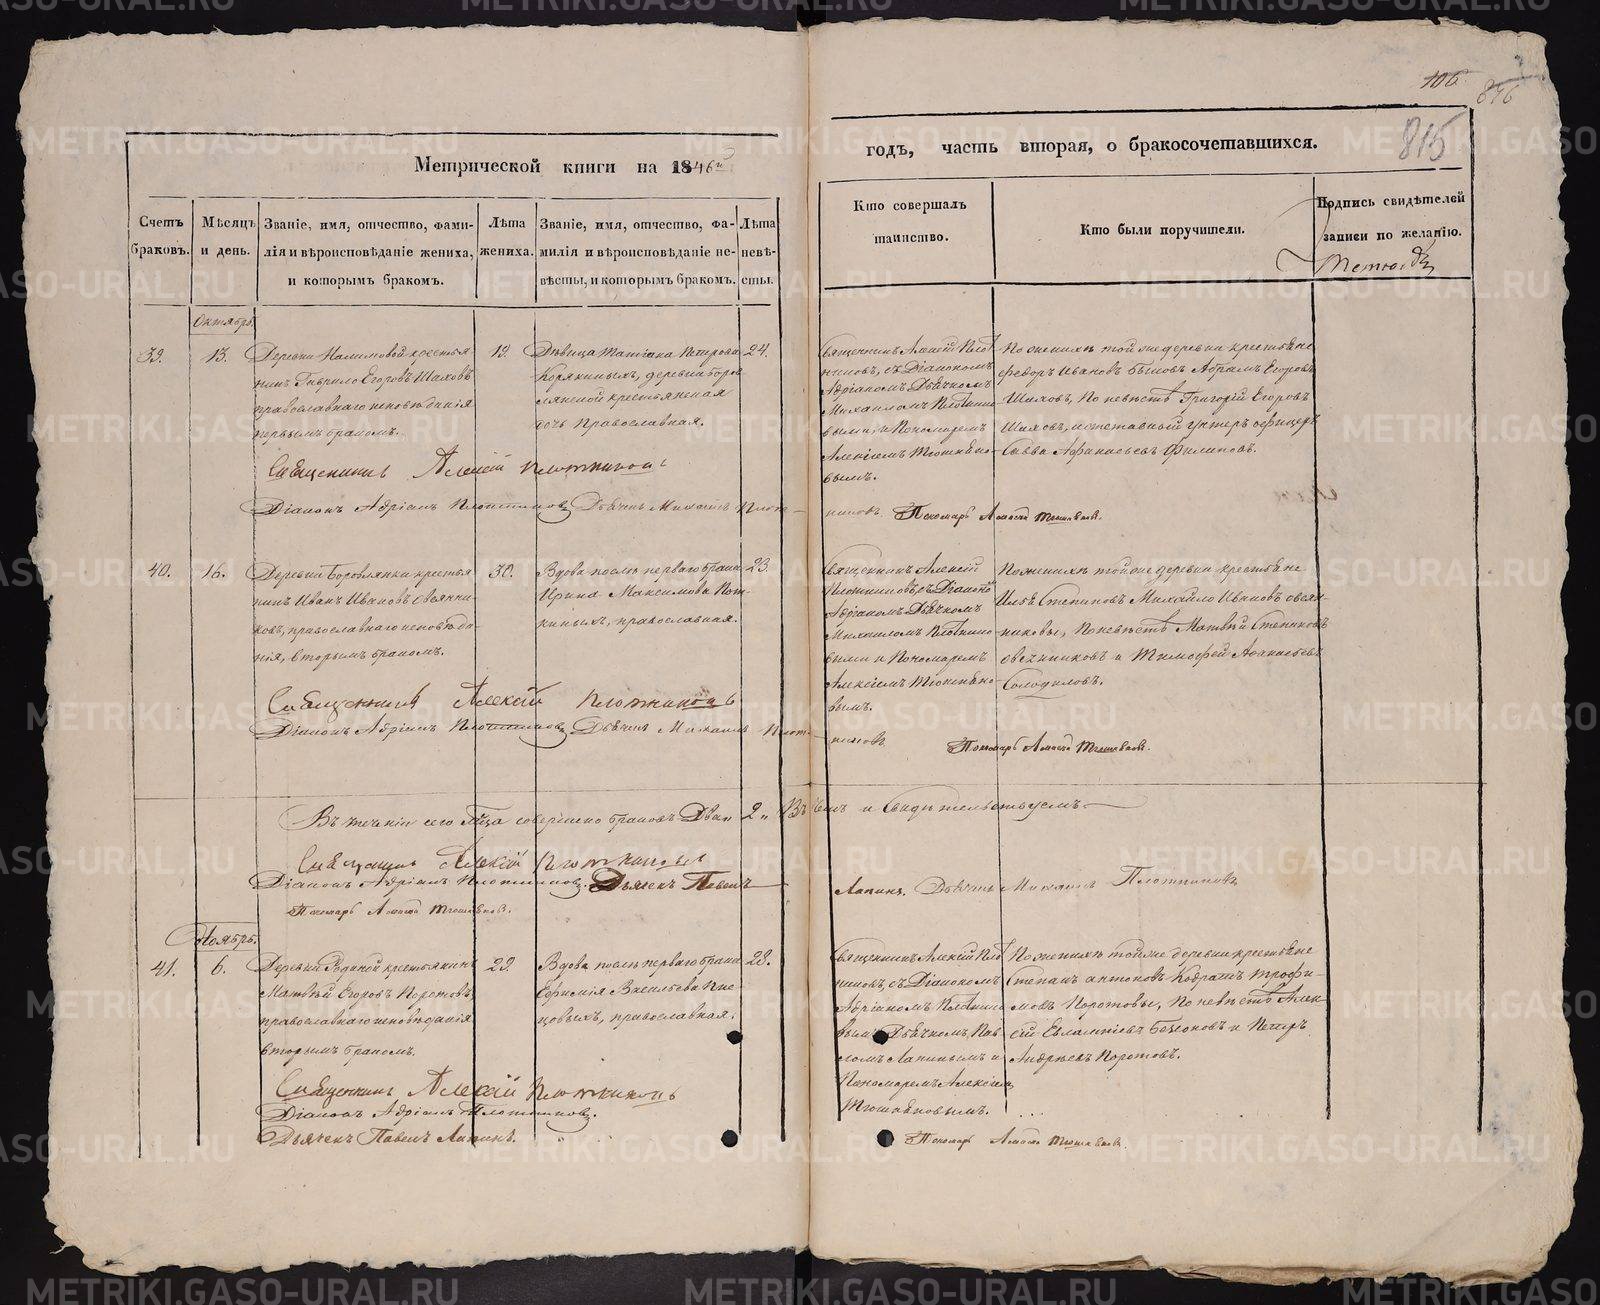 106
846
815
Метрической книги на 1846й
годъ, часть вторая, о бракосочетавшихся.
Счетъ браковъ.
Мѣсяцъ и день.
Званіе, имя, отчество, фами-
лія и вѣроисповѣданіе жениха,
и которымъ бракомъ.
Лѣта жениха.
Званіе, имя, отчество, фа-
милія и вѣроисповѣданіе не-
вѣсты, и которымъ бракомъ.
Лѣта невѣ-
сты.
Кто совершалъ
таинство.
Кто были поручители.
Подпись свидѣтелей
записи по желанію.
Октябрь.
39.
13.
Деревни Налимовой крестья
нинъ Гаврило Егоровъ Шаховъ
православнаго исповѣданія
первымъ бракомъ.
19.
Дѣвица Татіана Петрова
Корякиныхъ, деревни Боров
лянской крестьянская
дочь Православная.
24.
Священникъ Алексій Плот
никовъ, съ Діакономъ
Адріаномъ Дьячкомъ
Михаиломъ Плотнико
выми, и Пономаремъ
Алексіемъ Тюшняко-
вымъ.
По женихѣ той же деревни крестьяне
Федоръ Ивановъ Быковъ Абрамъ Егоровъ
Шаховъ, По невѣстѣ Григорій Егоровъ
Шаховъ, и отставный унтеръ офицеръ
Савва Афанасьевъ Филиповъ.
Священникъ Алексій Плотниковъ
Діаконъ Адріанъ Плотниковъ Дьячекъ Михаилъ Плот-
никовъ Пономарь Алексій Тюшняковъ.
40.
16.
Деревни Боровлянки крестья
нинъ Иванъ Ивановъ Овсянни-
ковъ, православнаго исповѣда-
нія, вторымъ бракомъ.
30.
Вдова послѣ перваго брака
Ирина Максимова Кот-
киныхъ, православная.
23.
Священникъ Алексій
Плотниковъ, съ Діакономъ
Адріаномъ Дьячкомъ
Михаиломъ Плотнико
выми и Пономаремъ
Алексіемъ Тюшняко-
вымъ.
По женихѣ той же деревни крестьяне
Илья Степановъ Михайло Ивановъ Овсян-
никовы, По невѣстѣ Матвѣй Степановъ
Овчинниковъ и Тимофей Афанасьевъ
Солодиловъ.
Священникъ Алексій Плотниковъ
Діаконъ Адріанъ Плотниковъ Дьячекъ Михаилъ Плот-
никовъ Пономарь Алексій Тюшняковъ.
Въ теченіи сего м-ца совершено браковъ Два 2. Въ чемъ и Свидѣтельствуемъ
Священникъ Алексій Плотниковъ
Діаконъ Адріанъ Плотниковъ. Дьячекъ Павелъ
Лапинъ. Дьячекъ Михаилъ Плотниковъ
Пономарь Алексій Тюшняковъ.
Ноябрь.
41.
6.
Деревни Родиной крестьянинъ
Матвѣй Егоровъ Коротовъ
православнаго исповѣданія
вторымъ бракомъ.
29.
Вдова послѣ перваго брака
Ефимія Васильева Пше
цовыхъ, православная.
28.
Священникъ Алексій Плот
никовъ, съ Діакономъ
Адріаномъ Плотнико
вымъ Дьячкомъ Пав-
ломъ Лапинымъ и
Пономаремъ Алексіемъ
Тюшняковымъ.
По женихѣ той же деревни крестьяне
Степанъ Антоновъ Кодратъ Трофи-
мовъ Коротовы, По невѣстѣ Алек-
сій Евлампіевъ Безсоновъ и Петръ
Андреевъ Коротовъ.
Священникъ Алексій Плотниковъ
Діаконъ Адріанъ Плотниковъ.
Дьячекъ Павелъ Лапинъ.
Пономарь Алексій Тюшняковъ.
METRIKI.GASO-URAL.RU